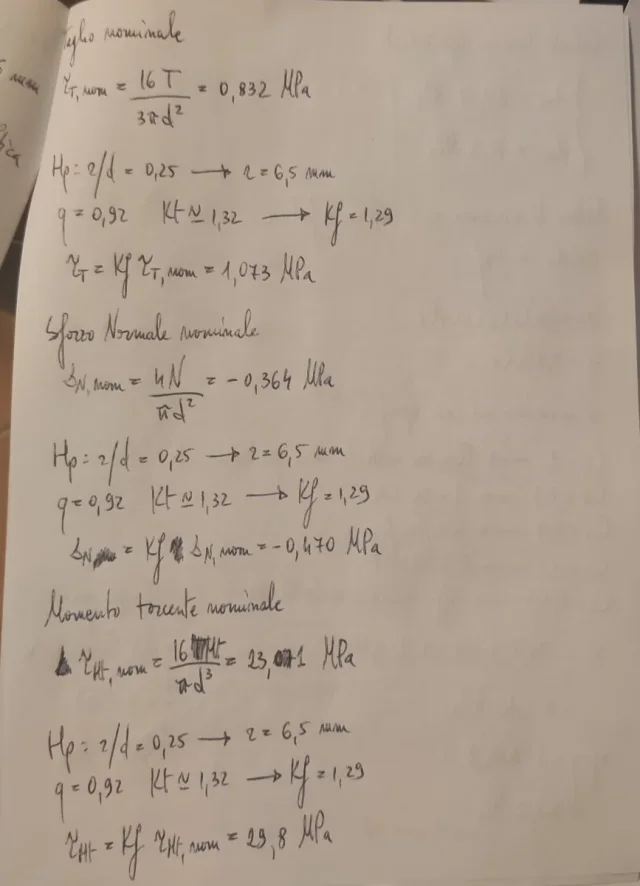 Taglio nominale
τT, nom = 16 T / 3πd² = 0,832 MPa
mm
Hp: r/d = 0,25 → r = 6,5 mm
q = 0,92 Kt ≃ 1,32 → Kf = 1,29
τT = Kf τT, nom = 1,073 MPa
Sforzo Normale nominale
σN, nom = 4N / πd² = -0,364 MPa
Hp: r/d = 0,25 → r = 6,5 mm
q = 0,92 Kt ≃ 1,32 → Kf = 1,29
σN = Kf σN, nom = -0,470 MPa
Momento torcente nominale
τMt, nom = 16 Mt / πd³ = 23,1 MPa
Hp: r/d = 0,25 → r = 6,5 mm
q = 0,92 Kt ≃ 1,32 → Kf = 1,29
τMt = Kf τMt, nom = 29,8 MPa